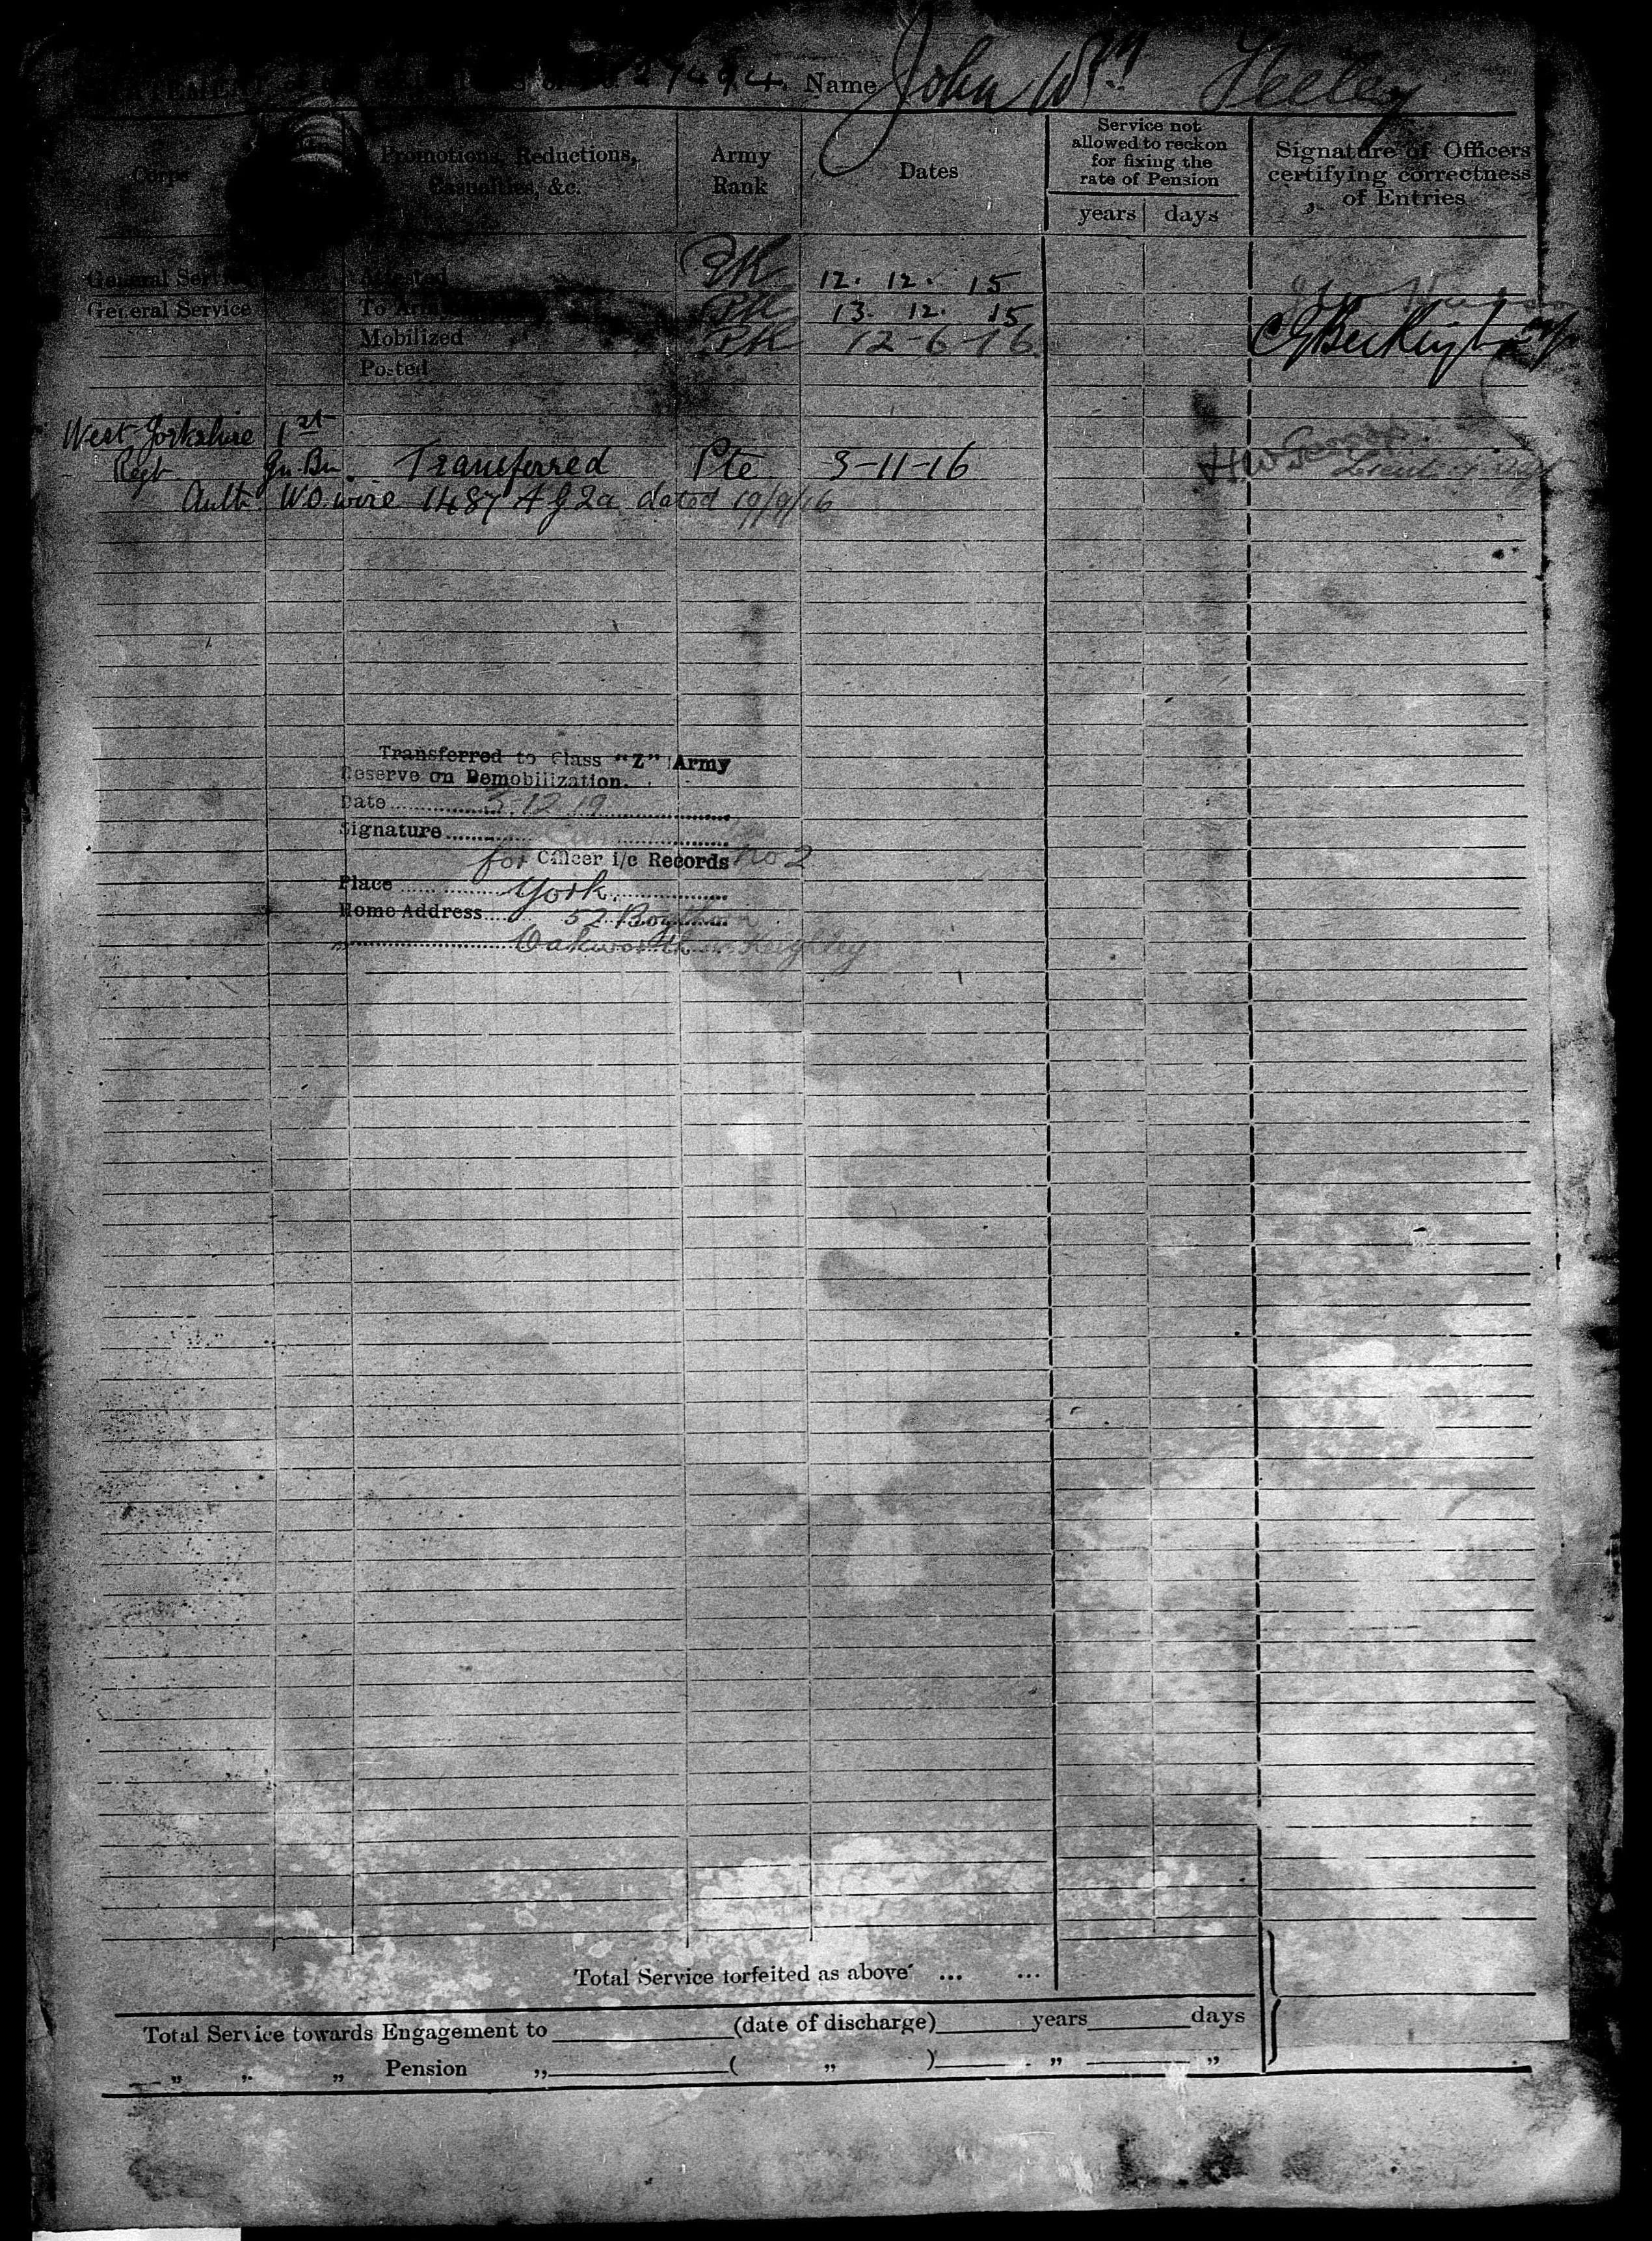 STATEMENT Name John Wm Feeley
Corps Promotions, Reductions, Casualties, &c. Army Rank Dates Service not allowed to reckon for fixing the rate of Pension years days Signature of Officers certifying correctness of Entries
General Service Attested 12. 12. 15
General Service To Army 13. 12. 15
Mobilized 12-6-16
Posted
West Yorkshire 1st
Regt Gn. Bn. Transferred Pte 3-11-16
Auth. W.O. wire 1487 A G 2a dated 19/9/16
Transferred to Class "Z" Army
Reserve on Demobilization.
Date 3.12.19
Signature
for Officer i/c Records No 2
Place York.
Home Address 52
Oakworth Keighley
Total Service forfeited as above ... ...
Total Service towards Engagement to (date of discharge) years days
„ „ „ Pension „ ( „ ) „ „